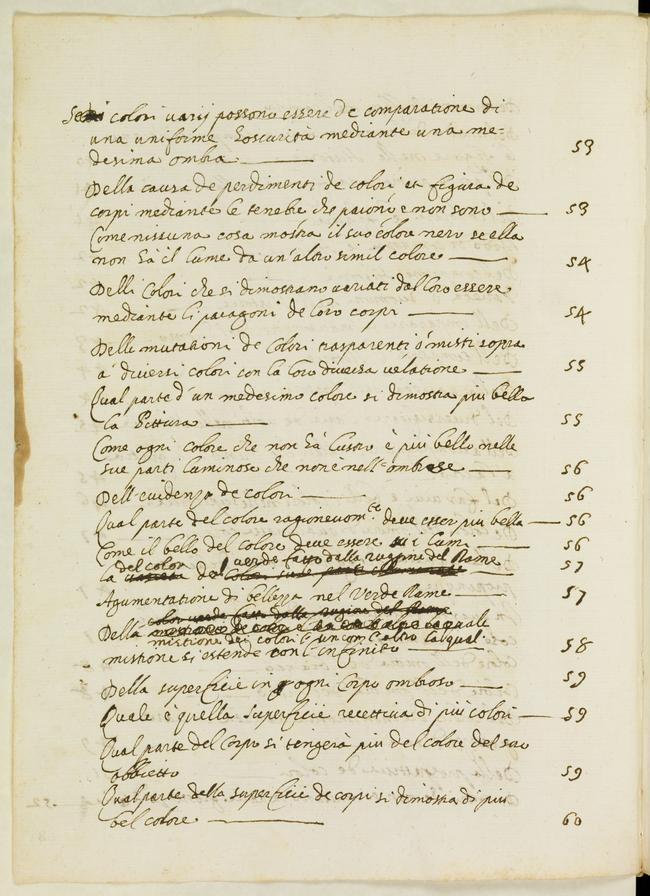 Se i colori varij possono essere de comparatione di
una uniforme hoscurità mediante una me=
desima ombra 53
Della causa de perdimenti de colori et figura de
corpi mediante le tenebre che paiono e non sono 53
Come nissuna cosa mostra il suo colore nero se ella
non hà il lume da un'altro simil colore 54
Delli Colori che si dimostrano variati dal loro essere
mediante li paragoni de loro corpi 54
Delle mutationi de Colori trasparenti ò misti sopra
a' diversi colori con la loro diversa velatione 55
Qual parte d'un medesimo colore si dimostra più bella
la Pittura 55
Come ogni colore che non hà lustro è più bello nelle
sue parti luminose che non è nell'ombrose 56
Dell'evidenza de colori 56
Qual parte del colore ragionevolmte deve esser più bella 56
Come il bello del colore deve essere ne i lumi 56
del colore verde fatto dalla ruggine del Rame
57
Agumentatione di bellezza nel Verde Rame 57
Della
mistione dei colori l'un con l'altro la qual
mistione si estende con l'infinito 58
Della superficie in ogni Corpo ombroso 59
Quale è quella superficie recettiva di più colori 59
Qual parte del Corpo si tingerà più del colore del suo
obbietto 59
Qual parte della superficie de corpi si dimostra di più
bel colore 60